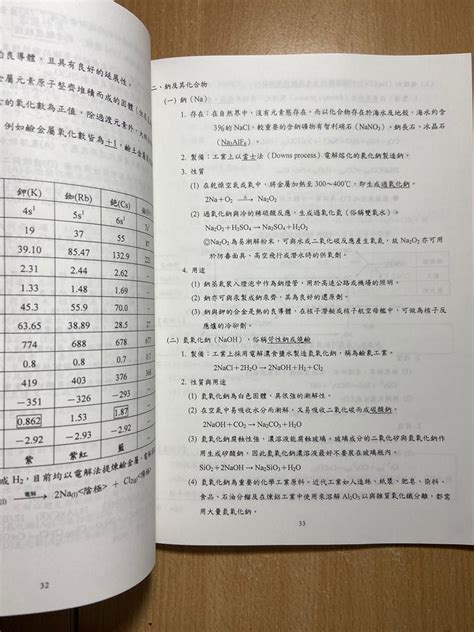 良導體,且具有良好的延展性。
金屬元素原子堅實堆積而成的固體
的氧化數為正值,除過渡元素外,大
例如鹼金屬氧化數皆為+1,鹼土金屬
鉀(K) 銣(Rb) 銫(Cs)
4s¹ 5s¹ 6s¹
19 37 55 87
39.10 85.47 132.9 223
2.31 2.44 2.62
1.33 1.48 1.69
45.3 55.9 70.0
63.65 38.89 28.5 27
774 688 678 677
0.8 0.8 0.7
419 403 376
−351 −326 −293
0.862 1.53 1.87
−2.92 −2.93 −2.92
紫 紫紅 藍
或 H₂,目前均以電解法提煉鹼金屬,電解
電解
2Na(l)<陰極> + Cl₂(g)<陽極>
32
二、鈉及其化合物
(一) 鈉(Na)
1. 存在:在自然界中,沒有元素態存在,而以化合物存在於海水及地殼,海水約含
3%的 NaCl,較重要的含鈉礦物有智利硝石(NaNO₃)、鈉長石、冰晶石
(Na₃AlF₆)。
2. 製備:工業上以當士法(Downs process)電解熔化的氯化鈉製造鈉。
3. 性質
(1) 在乾燥空氣或氧中,將金屬加熱至 300~400℃,即生成過氧化鈉。
2Na + O₂ → Na₂O₂
(2) 過氧化鈉與冷的稀硫酸反應,生成過氧化氫(俗稱雙氧水)。
Na₂O₂+H₂SO₄ → Na₂SO₄+H₂O₂
◎Na₂O₂為易潮解粉末,可與水或二氧化碳反應產生氧氣,故 Na₂O₂亦可用
於防毒面具、高空飛行或潛水時的供氧劑。
4. 用途
(1) 鈉蒸氣裝入燈泡中作為鈉燈管,用於高速公路或機場的照明。
(2) 鈉亦可與汞製成鈉汞齊,其為良好的還原劑。
(3) 鈉與鉀的合金是熱的良導體,在核子潛艇或核子航空母艦中,可做為核子反
應爐的冷卻劑。
(二) 氫氧化鈉(NaOH),俗稱苛性鈉或燒鹼
1. 製備:工業上採用電解濃食鹽水製造氫氧化鈉,稱為鹼氯工業。
2NaCl+2H₂O → 2NaOH+H₂+Cl₂
2. 性質與用途
(1) 氫氧化鈉為白色固體,具很強的潮解性。
(2) 在空氣中易吸收水分而潮解,又易吸收二氧化碳而成碳酸鈉。
2NaOH+CO₂ → Na₂CO₃+H₂O
(3) 氫氧化鈉腐蝕性強,濃溶液能腐蝕玻璃。玻璃成分的二氧化矽與氫氧化鈉作
用生成矽酸鈉,因此氫氧化鈉濃溶液最好不要裝在玻璃瓶內。
SiO₂+2NaOH → Na₂SiO₃+H₂O
(4) 氫氧化鈉為重要的化學工業原料,近代工業如人造絲、紙漿、肥皂、染料、
食品、石油分餾及在煉鋁工業中使用來溶解 Al₂O₃以與雜質氧化鐵分離,都需
用大量氫氧化鈉。
33